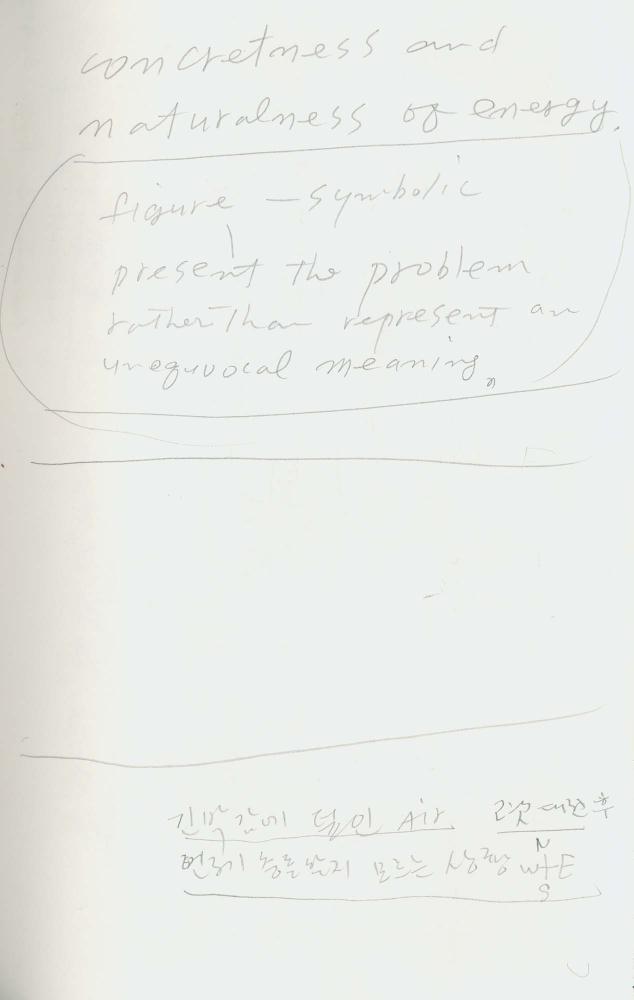 concretness and
naturalness of energy.
figure — symbolic
present the problem
rather than represent an
unequvocal meaning,
덮인 Air.
모르는
N
W+E
S